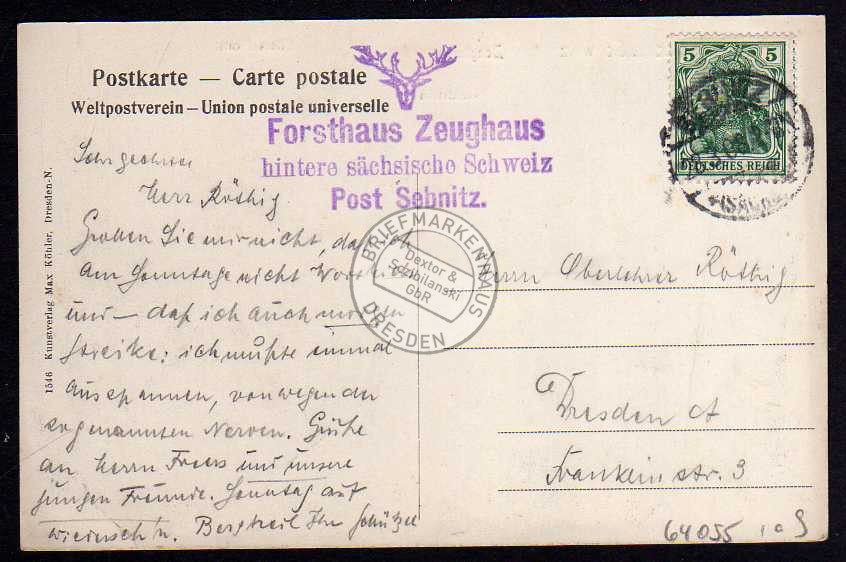 Postkarte — Carte postale
Weltpostverein – Union postale universelle
Forsthaus Zeughaus
hintere sächsische Schweiz
Post Sebnitz.
5 5
DEUTSCHES REICH
Sehr geehrter
Herr Röthig
Grollen Sie mir nicht, daß ich
am Sonntage nicht
und — daß ich auch morgen
streike: ich mußte einmal
ausspannen, von wegen der
sogenannten Nerven. Grüße
an Herrn Freers und unsere
jungen Freunde. Sonntag auf
Wiedersehn. Bergheil Ihr Schützel
Herrn Oberlehrer Röthig
Dresden A
Franklinstr. 3
1546 Kunstverlag Max Köhler, Dresden-N.
BRIEFMARKENHAUS
Dextor &
Szibilanski
GbR
DRESDEN
64055